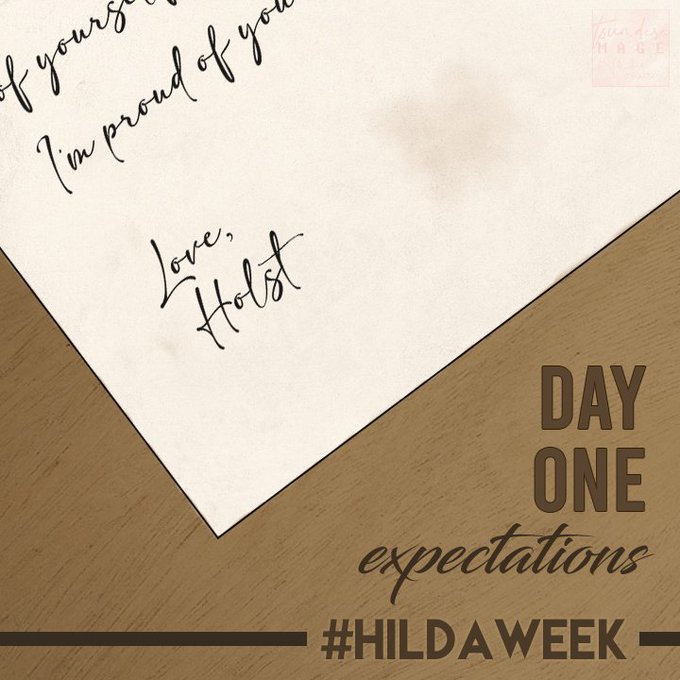 of yourself
I'm proud of you
Love,
Holst
DAY
ONE
expectations
#HILDAWEEK
MAGE